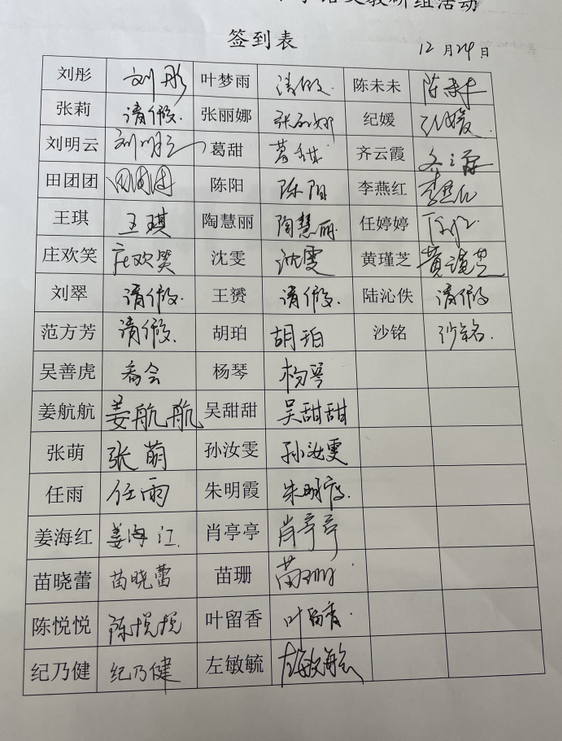 语文教研组活动
签到表
12月24日
刘彤 刘彤 叶梦雨 请假 陈未未 陈未未
张莉 请假 张丽娜 张丽娜 纪媛 纪媛
刘明云 刘明云 葛甜 葛甜 齐云霞 齐云霞
田团团 田团团 陈阳 陈阳 李燕红 李燕红
王琪 王琪 陶慧丽 陶慧丽 任婷婷
庄欢笑 庄欢笑 沈雯 沈雯 黄瑾芝 黄瑾芝
刘翠 请假. 王赟 请假. 陆沁佚 请假
范方芳 请假. 胡珀 胡珀 沙铭 沙铭.
吴善虎 杨琴 杨琴
姜航航 姜航航 吴甜甜 吴甜甜
张萌 张萌 孙汝雯 孙汝雯
任雨 任雨 朱明霞 朱明霞.
姜海红 姜海红 肖亭亭 肖亭亭
苗晓蕾 苗晓蕾 苗珊 苗珊
陈悦悦 陈悦悦 叶留香 叶留香.
纪乃健 纪乃健 左敏毓 左敏毓